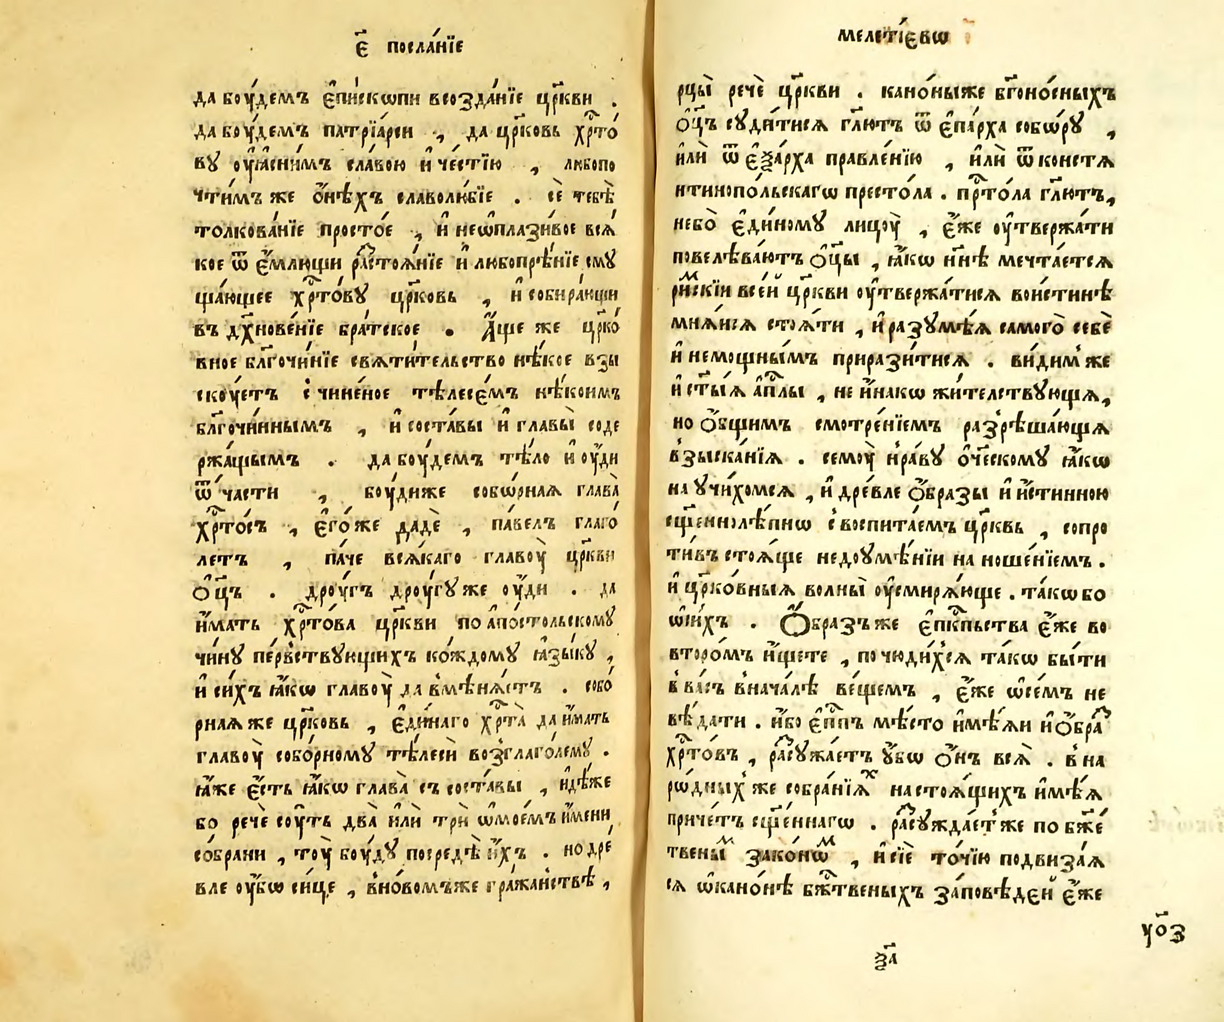 є҃ посла́нїе
да боу́демъ є҆пи́скѡпи всозда́нїе цр҃кви .
да боу́демъ патрїа́рси , да цр҃ковь хрⷭ҇то́
ву оу҆ꙗсни́мъ сла́вою и҆ че́стїю , любопо
чти́мъ же ѻ҆нѣ́хъ славолю́бїе . сѐ тебѣ̀
толкова́нїе просто́е , и҆ неѡплази́вое вся́
кое ѿ є҆́млющи разстоя́нїе и҆ любопрѣ́нїе сму
ща́ющее хрⷭ҇то́ву цр҃ковь , и҆ собира́ющи
въ дх҃нове́нїе бра́тское . А҆́ще же цр҃ко́
вное бл҃гочи́нїе свѧти́тельство нѣ́кое взы
ску́етъ счине́ное тѣлесє́мъ нѣ́коимъ
бл҃гочи́ннымъ , и҆ соста́вы и҆ главы̀ соде
ржа́щымъ . да боу́демъ тѣ́ло и҆ оу҆́ди
ѿ ча́сти , боу́диже собо́рнаѧ глава̀
хрⷭ҇то́съ , є҆го́же дадѐ , па́велъ глаго́
летъ , па́че всѧ́каго главоу̀ цр҃кви
ѻ҆ц҃ъ . дроу́гъ дроу́гꙋ же оу҆́ди . да
и҆́мать хрⷭ҇то́ва цр҃кви по а҆по́стольскомꙋ
чи́нꙋ пе́рвствꙋющихъ ко́ждомꙋ ꙗ҆зы́кꙋ ,
и҆ си́хъ ꙗ҆́кѡ главоу̀ да вмѣнѧ́етъ . собо́
рнаѧ же цр҃ковь , є҆ди́наго хрⷭ҇та̀ да и҆́мать
главоу̀ собо́рномꙋ тѣлесѝ возглаго́лемꙋ .
ꙗ҆́же є҆́сть ꙗ҆́кѡ глава̀ съ соста́вы , и҆дѣ́же
бо речѐ соу́ть два̀ и҆лѝ трѝ ѡ҆мое́мъ и҆́мени
со́брани , тоу̀ боу́дꙋ посредѣ̀ и҆́хъ . но дре́
вле оу҆́бѡ си́це , вно́вомъже гража́нствѣ ,
меле́тїевѡ
рцы̀ речѐ цр҃кви . кано́ныже бг҃оно́сныхъ
ѻ҆ц҃ъ сꙋди́тисѧ гл҃ютъ ѿ є҆па́рха собѡ́рꙋ ,
и҆лѝ ѿ є҆ѯа́рха правле́нїю , и҆лѝ ѿ констѧ
нтинопо́льскагѡ престо́ла . прⷭ҇то́ла гл҃ютъ,
небо̀ є҆ди́номꙋ лицоу̀ , є҆́же оу҆твержа́ти
повелѣва́ютъ ѻ҆ц҃ы , ꙗ҆́кѡ нн҃ѣ мечта́етсѧ
ри́мскїи все́й цр҃кви оу҆твержа́тисѧ вои́стинѣ
мнѧ́исѧ стоѧ́ти , и҆ разꙋмѣ́ѧ самого̀ себѐ
и҆ немощны́мъ прирази́тисѧ . ви́дим же
и҆ ст҃ы́ѧ а҆пⷭ҇лы , не и҆́накѡ жи́телствꙋющѧ,
но ѻ҆́бщимъ смотре́нїемъ разрѣша́ющѧ
взыска́нїѧ . семоу̀ нра́вꙋ ѻ҆ч҃ескомꙋ ꙗ҆́кѡ
наꙋчи́хомсѧ , и҆ дре́вле ѻ҆́бразы и҆ и҆́стинною
сщ҃еннолѣ́пнѡ своспита́емъ цр҃квь , сопро
ти́въ стоѧ́ще недоꙋмѣ́нїи на ноше́нїемъ .
и҆ цр҃ко́вныѧ волны̀ оу҆смирѧ́юще . та́кѡбо
ѡ҆ си́хъ . Ѻ҆́бразъже є҆пⷭ҇кпьства є҆́же во
второ́мъ и҆́щете , почюди́хсѧ та́кѡ бы́ти
в ва́съ внача́лѣ ве́щемъ , є҆́же ѡ҆се́мъ не
вѣ́дати . и҆́бо є҆пⷭ҇пъ мѣ́сто и҆мѣ́ѧи и҆ ѻ҆́браз
хрⷭ҇то́въ , разсꙋжа́етъ ᲂу҆́бѡ ѻ҆́нъ всѧ̀ . в на
рѡ́дныхже собра́нїѧх настоѧ́щихъ и҆мѣ́ѧ
при́четъ сщ҃е́ннагѡ . разсꙋжда́етже по бж҃е́
твенымъ зако́нѡм , и҆ сїѐ то́чїю подвиза́ѧ
сѧ ѡ҆кано́нѣ бжⷭ҇твеныхъ за́повѣдей є҆́же
ѯ҃а
уо҃з